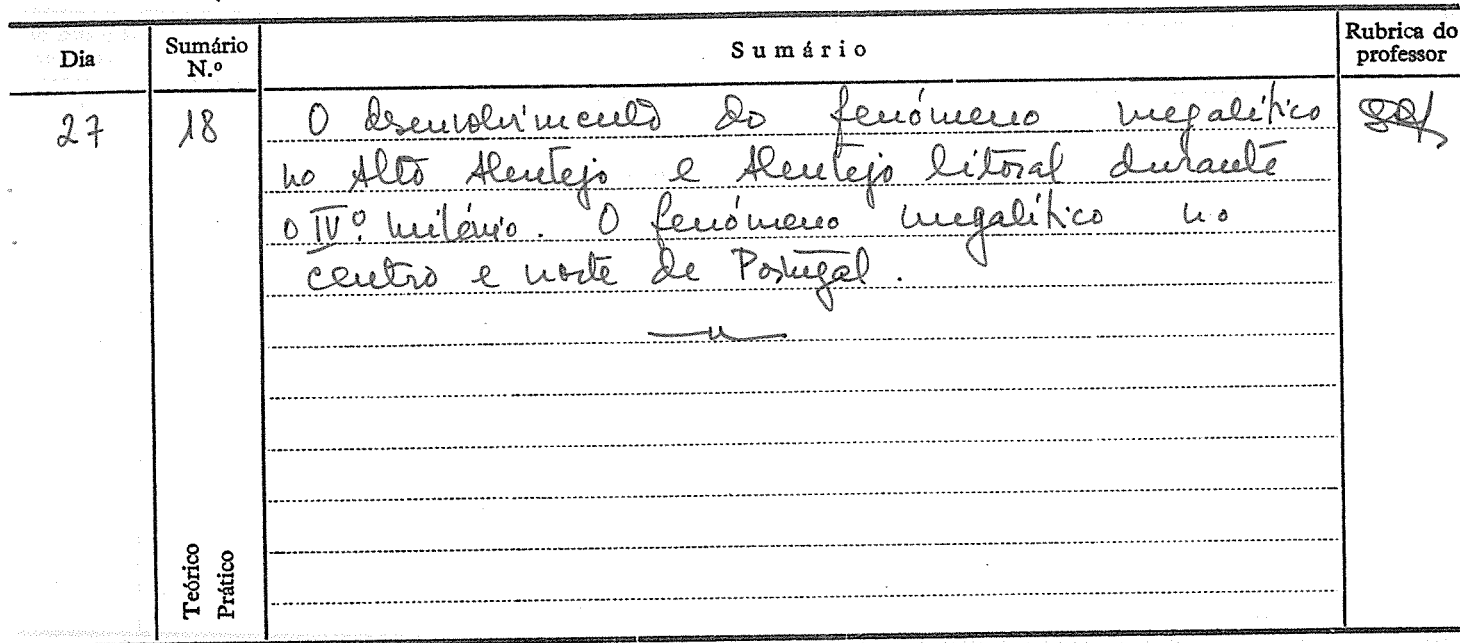 Dia
Sumário N.º
Sumário
Rubrica do professor
27
18
O desenvolvimento do fenómeno megalítico
no Alto Alentejo e Alentejo litoral durante
o IVº milénio. O fenómeno megalítico no
centro e norte de Portugal.
Teórico
Prático